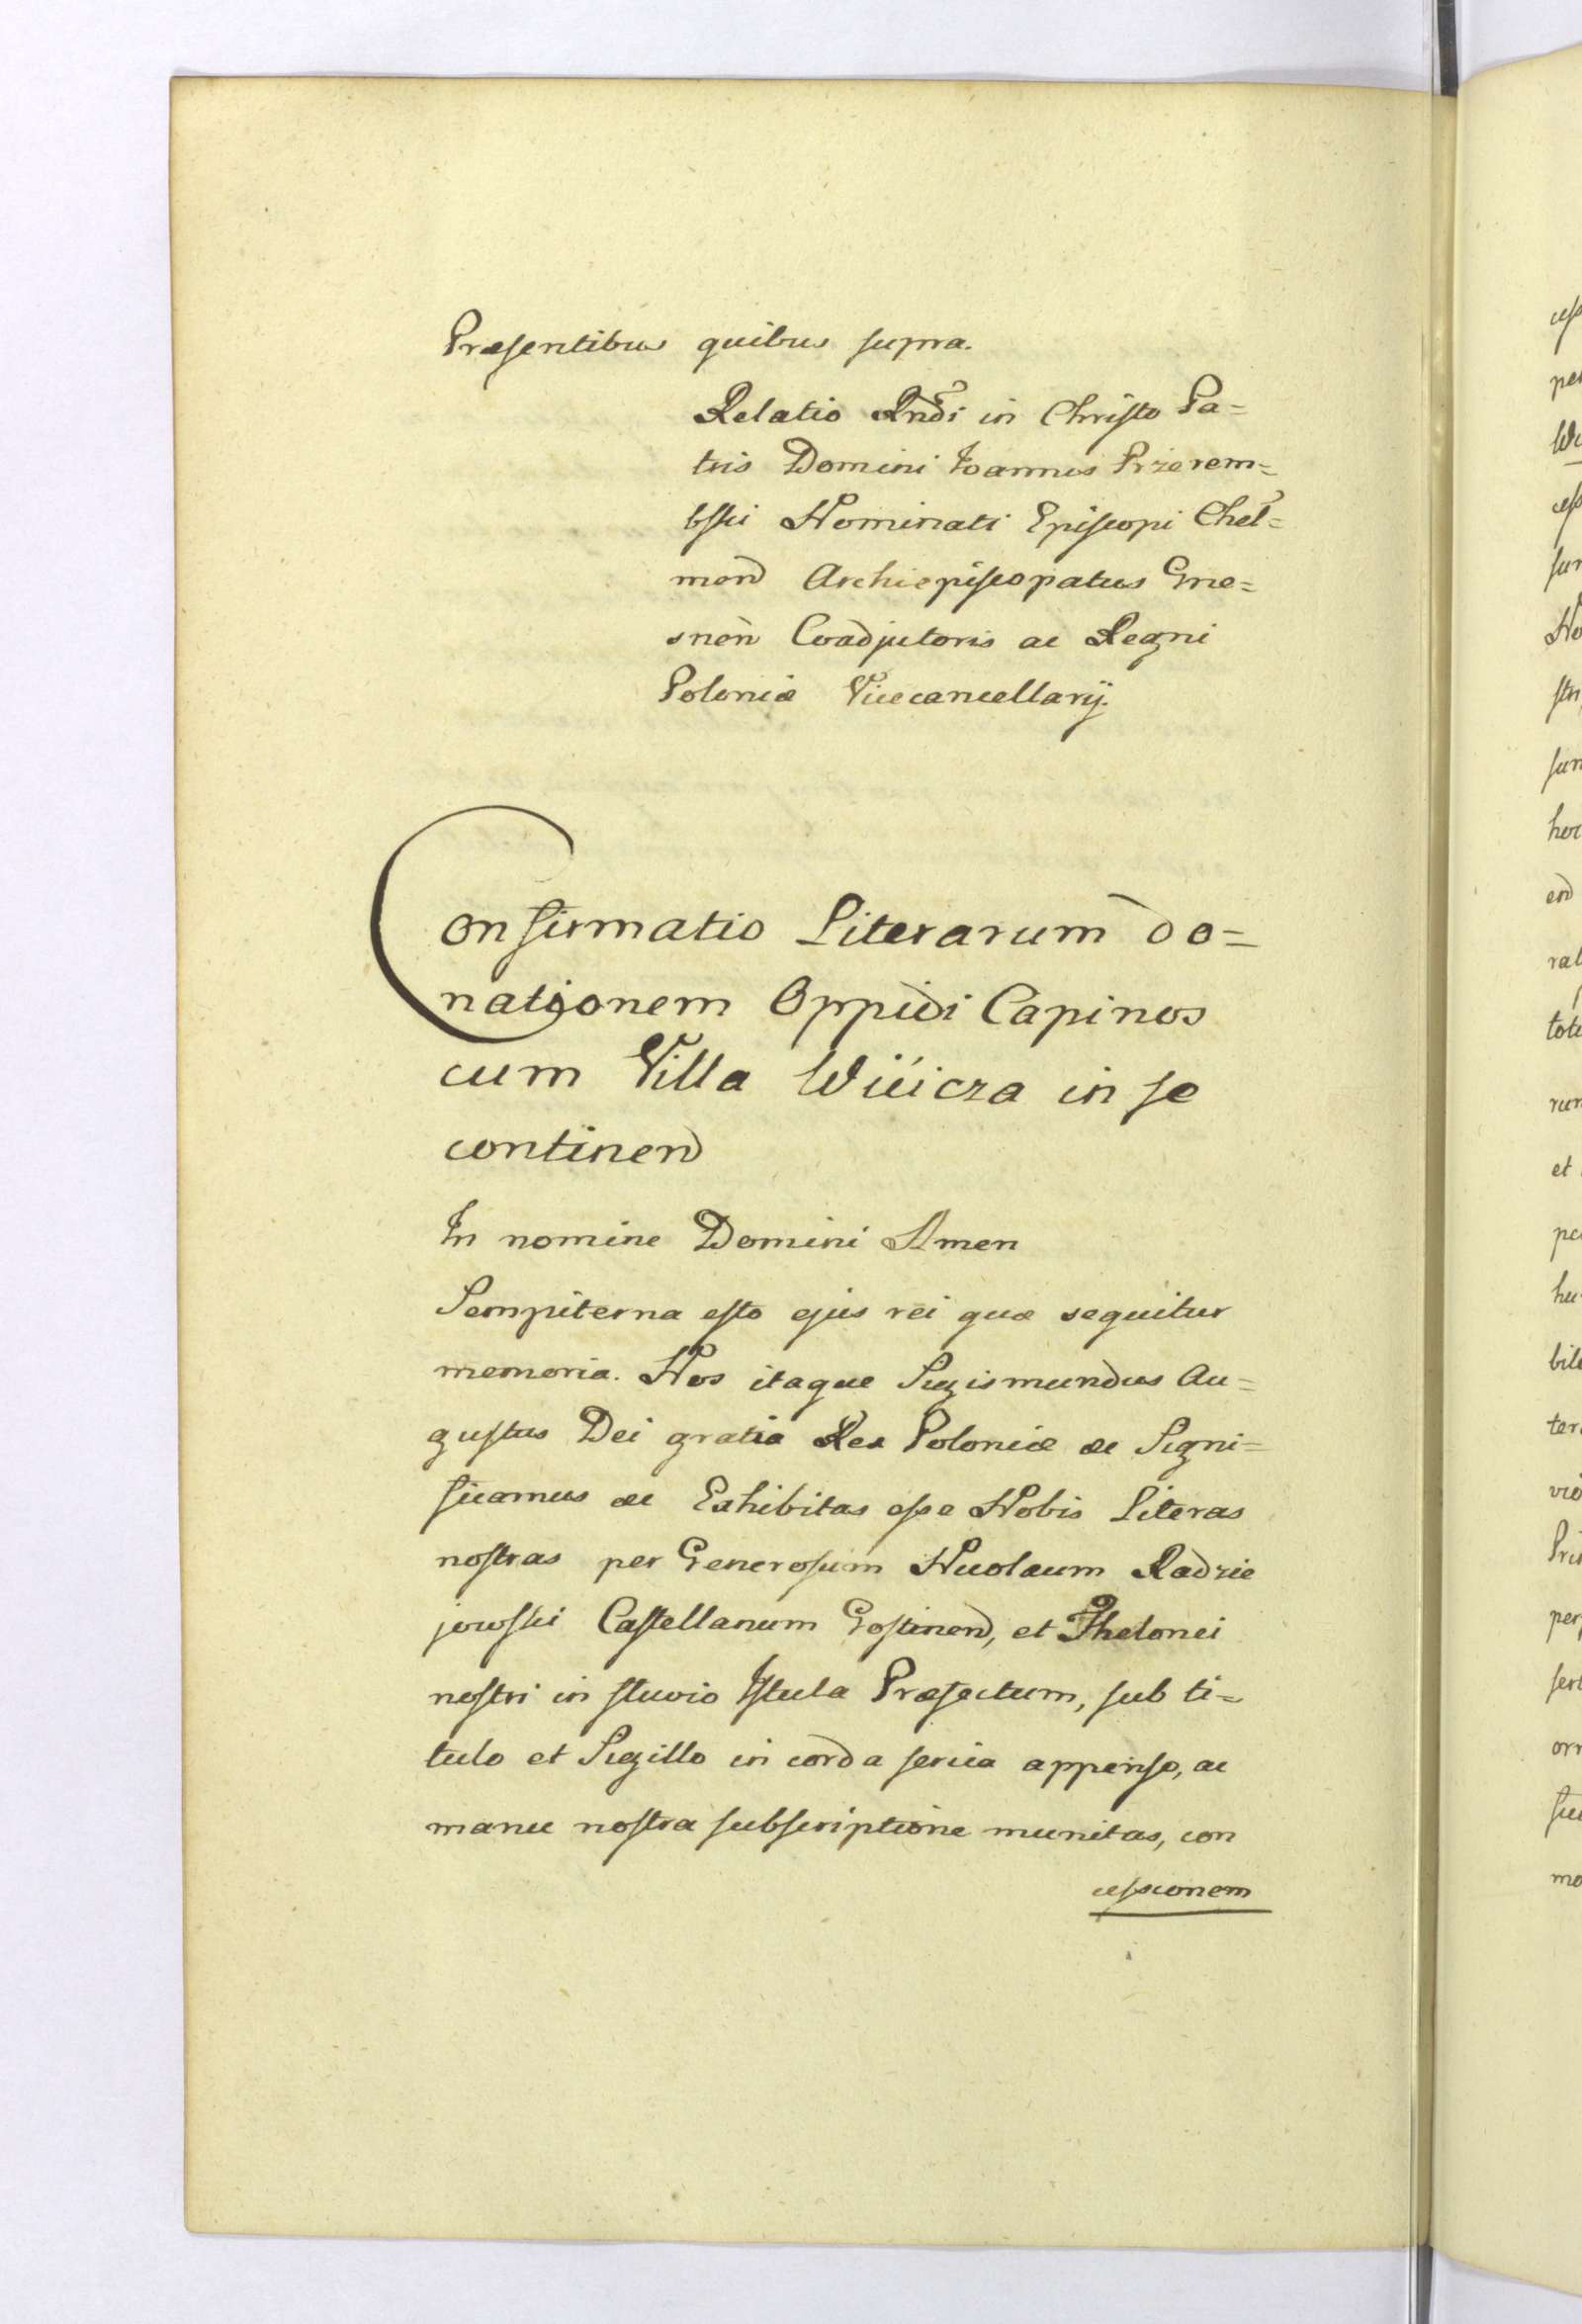 Præsentibus quibus supra.
Relatio Rndi in Christo Pa=
tris Domini Joannis Przerem=
bski Nominati Episcopi Chel=
men Archiepiscopatus Gne=
snen Coadjutoris ac Regni
Poloniæ Vicecancellarij.
Confirmatio Literarum do=
nationem Oppidi Capinos
cum Villa Wiicza in se
continen
In nomine Domini Amen
Sempiterna esto ejus rei quæ sequitur
memoria. Nos itaque Sigismundus Au=
gustus Dei gratia Rex Poloniæ &c Signi=
ficamus &c Exhibitas esse Nobis Literas
nostras per Generosum Nicolaum Radzie
jowski Castellanum Gostinen, et Thelonei
nostri in fluvio Istula Præfectum, sub ti=
tulo et Sigillo in corda serica appenso, ac
manu nostra subscriptione munitas, con
cessionem
ces
per